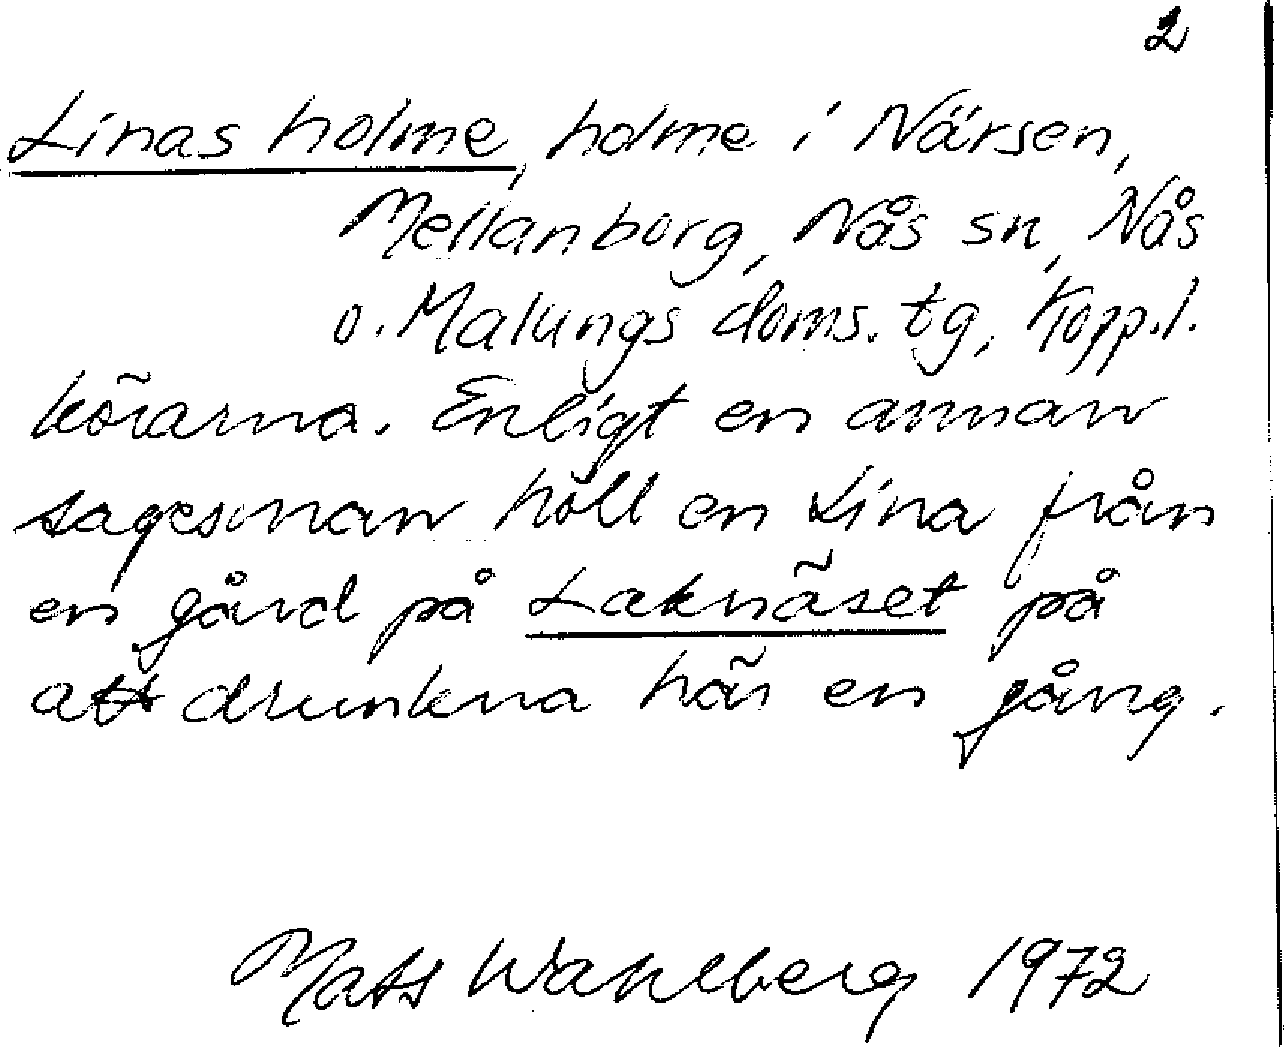 2
Linas holme, holme i Närsen,
Mellanborg, Nås sn, Nås
o. Malungs doms. tg, Kopp.l.
körarna. Enligt en annan
sagesman höll en Lina från
en gård på Laknäset på
att drunkna här en gång.
Mats Wahlberg 1972